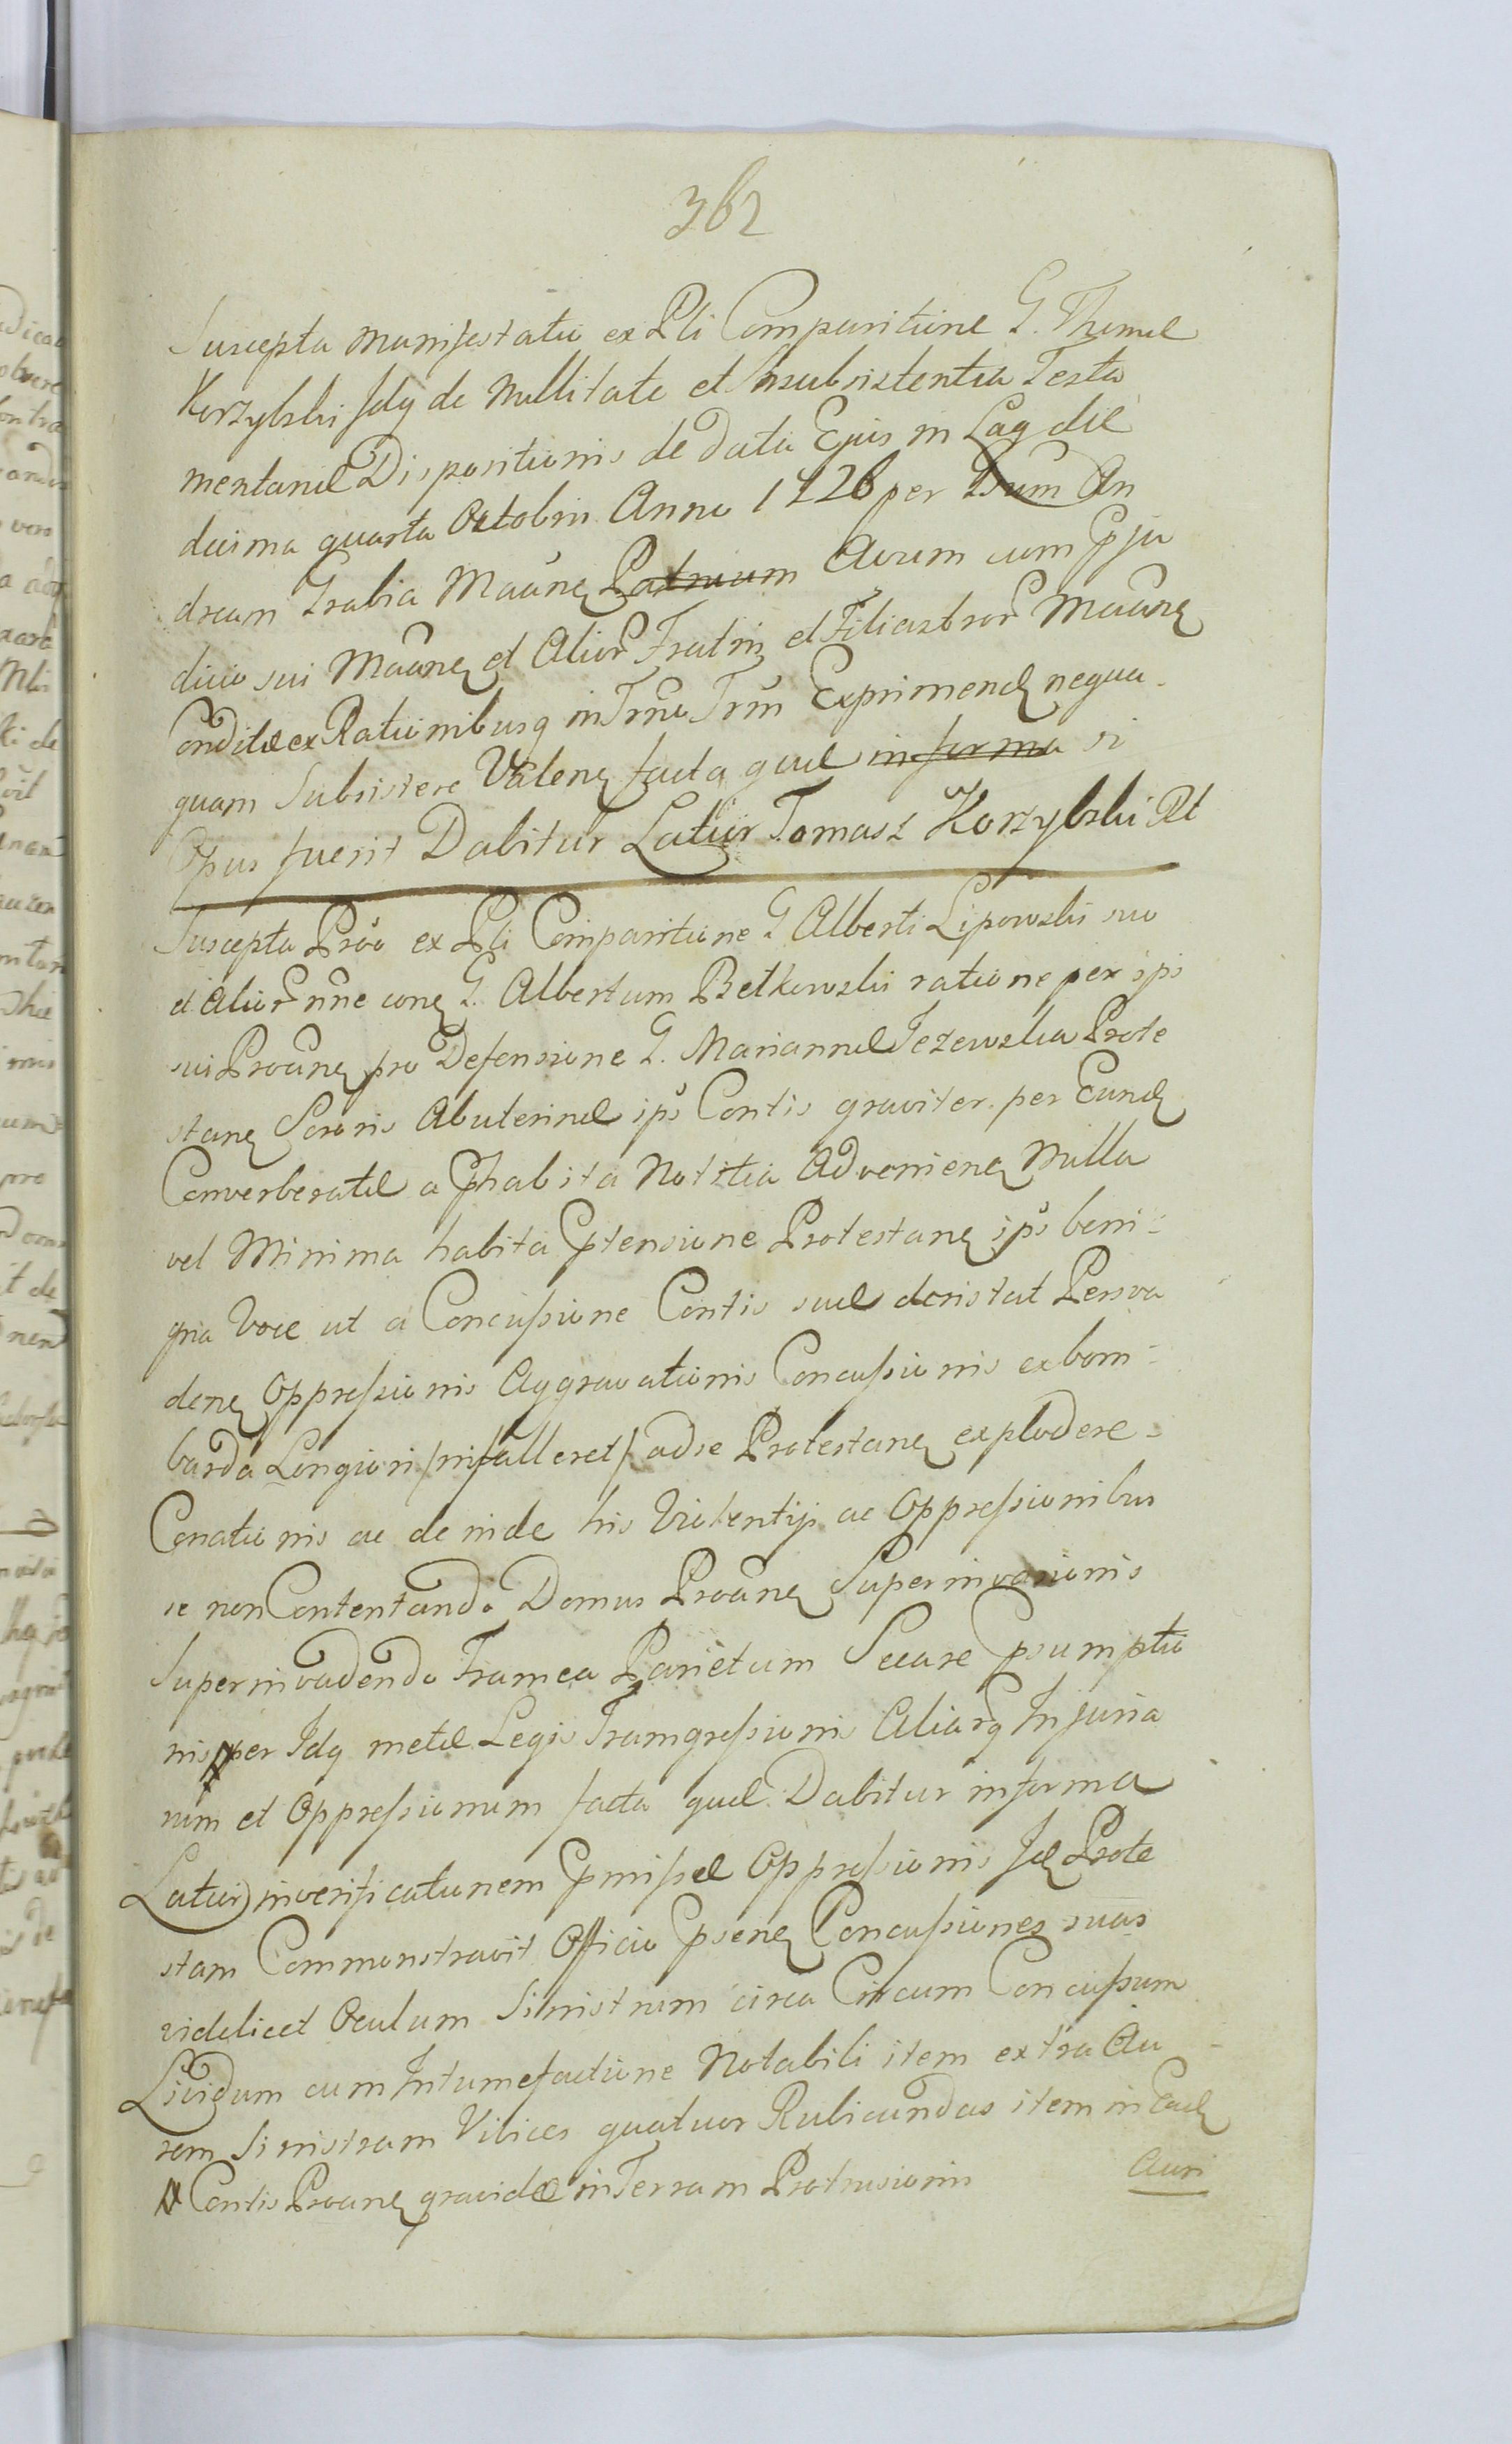 362
Suscepta manifestatio ex Pli Comparitione G. Thomæ
Korzybski Idq de Nullitate et Insubsistentia Testa
mentariæ Dispositionis de data Ejus in Lag die
decima quarta Octobris Anno 1726 per Dum An
dream Grabia Maãnẽ Patruum Avum cum Pju
dicio sui Maãnẽ et Alior Fratrũ et Filiastror Maãnẽ
Conditæ ex Rationibusq in Trno Trm Exprimendẽ nequa
quam Subsistere Valenẽ facta quæ in forma si
Opus fuerit Dabitur Latior Tomasz Korzybski Rt
Suscepta Prõo ex Pli Comparitione G Alberti Lipowski suo
et Alior nñe conẽ G. Albertum Betkowski ratione per ipi
sui Proãnẽ pro Defensione G. Mariannæ Jezewska Prote
stanẽ Sororis Abuterinæ ips Contis graviter per Eundẽ
Converberatæ a Phabita Notitia Advenienẽ Nulla
vel Minima habita Ptensione Protestanẽ ips beni
gna Voce ut a Concussione Contis suæ desistat Persva
denẽ Oppressionis Aggravationis Concussionis ex bom
barda Longiori /ni falleret/ ad se Protestanẽ explodere
Conationis ac deinde his Violentijs ac Oppressionibus
se non Contentando Domus Proãnẽ Superinvasionis
Superinvadendo Framea Parietum Secare Psumptio
nis per Idq metæ Legis Transgressionis Aliarq Injuria
rum et Oppressionum facta quæ Dabitur in forma
Latiori in verificationem Pmissæ Oppressionis Idẽ Prote
stam Commonstravit Officio Psenẽ Concussiones suas
videlicet Oculum Sinistrum circa Circum Concussum
Lividum cum Intumefactione Notabili item extra Au
rem Sinistram Vibices quatuor Rubicundas item in Eadẽ
Auri
Contis Proanẽ gravidæ in Terram Protrusionis